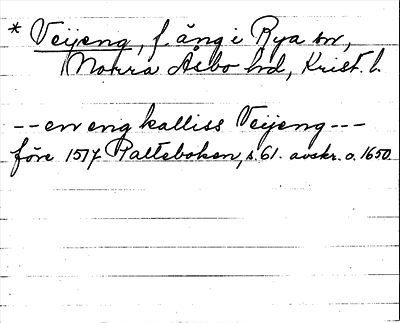 * Veijeng, f. äng i Rya sn,
Norra Åsbo hd, Krist. l.
-- en eng kalliss Veijeng ---
före 1517 Palteboken, s. 61. avskr. o. 1650